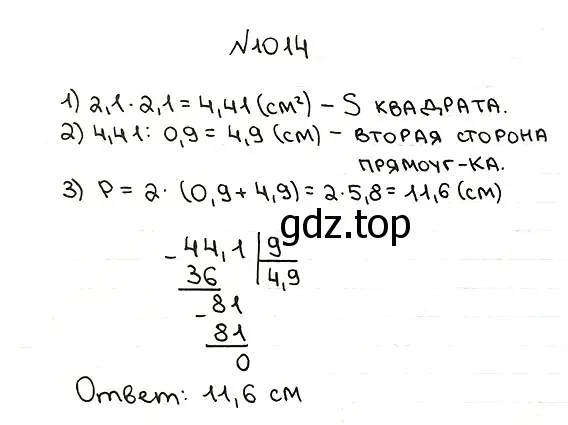 №1014
1) 2,1 · 2,1 = 4,41 (см²) – S квадрата.
2) 4,41 : 0,9 = 4,9 (см) – вторая сторона
прямоуг-ка.
3) P = 2 · (0,9 + 4,9) = 2 · 5,8 = 11,6 (см)
gdz.top
- 44,1 | 9
36 | 4,9
- 81
81
0
Ответ: 11,6 см